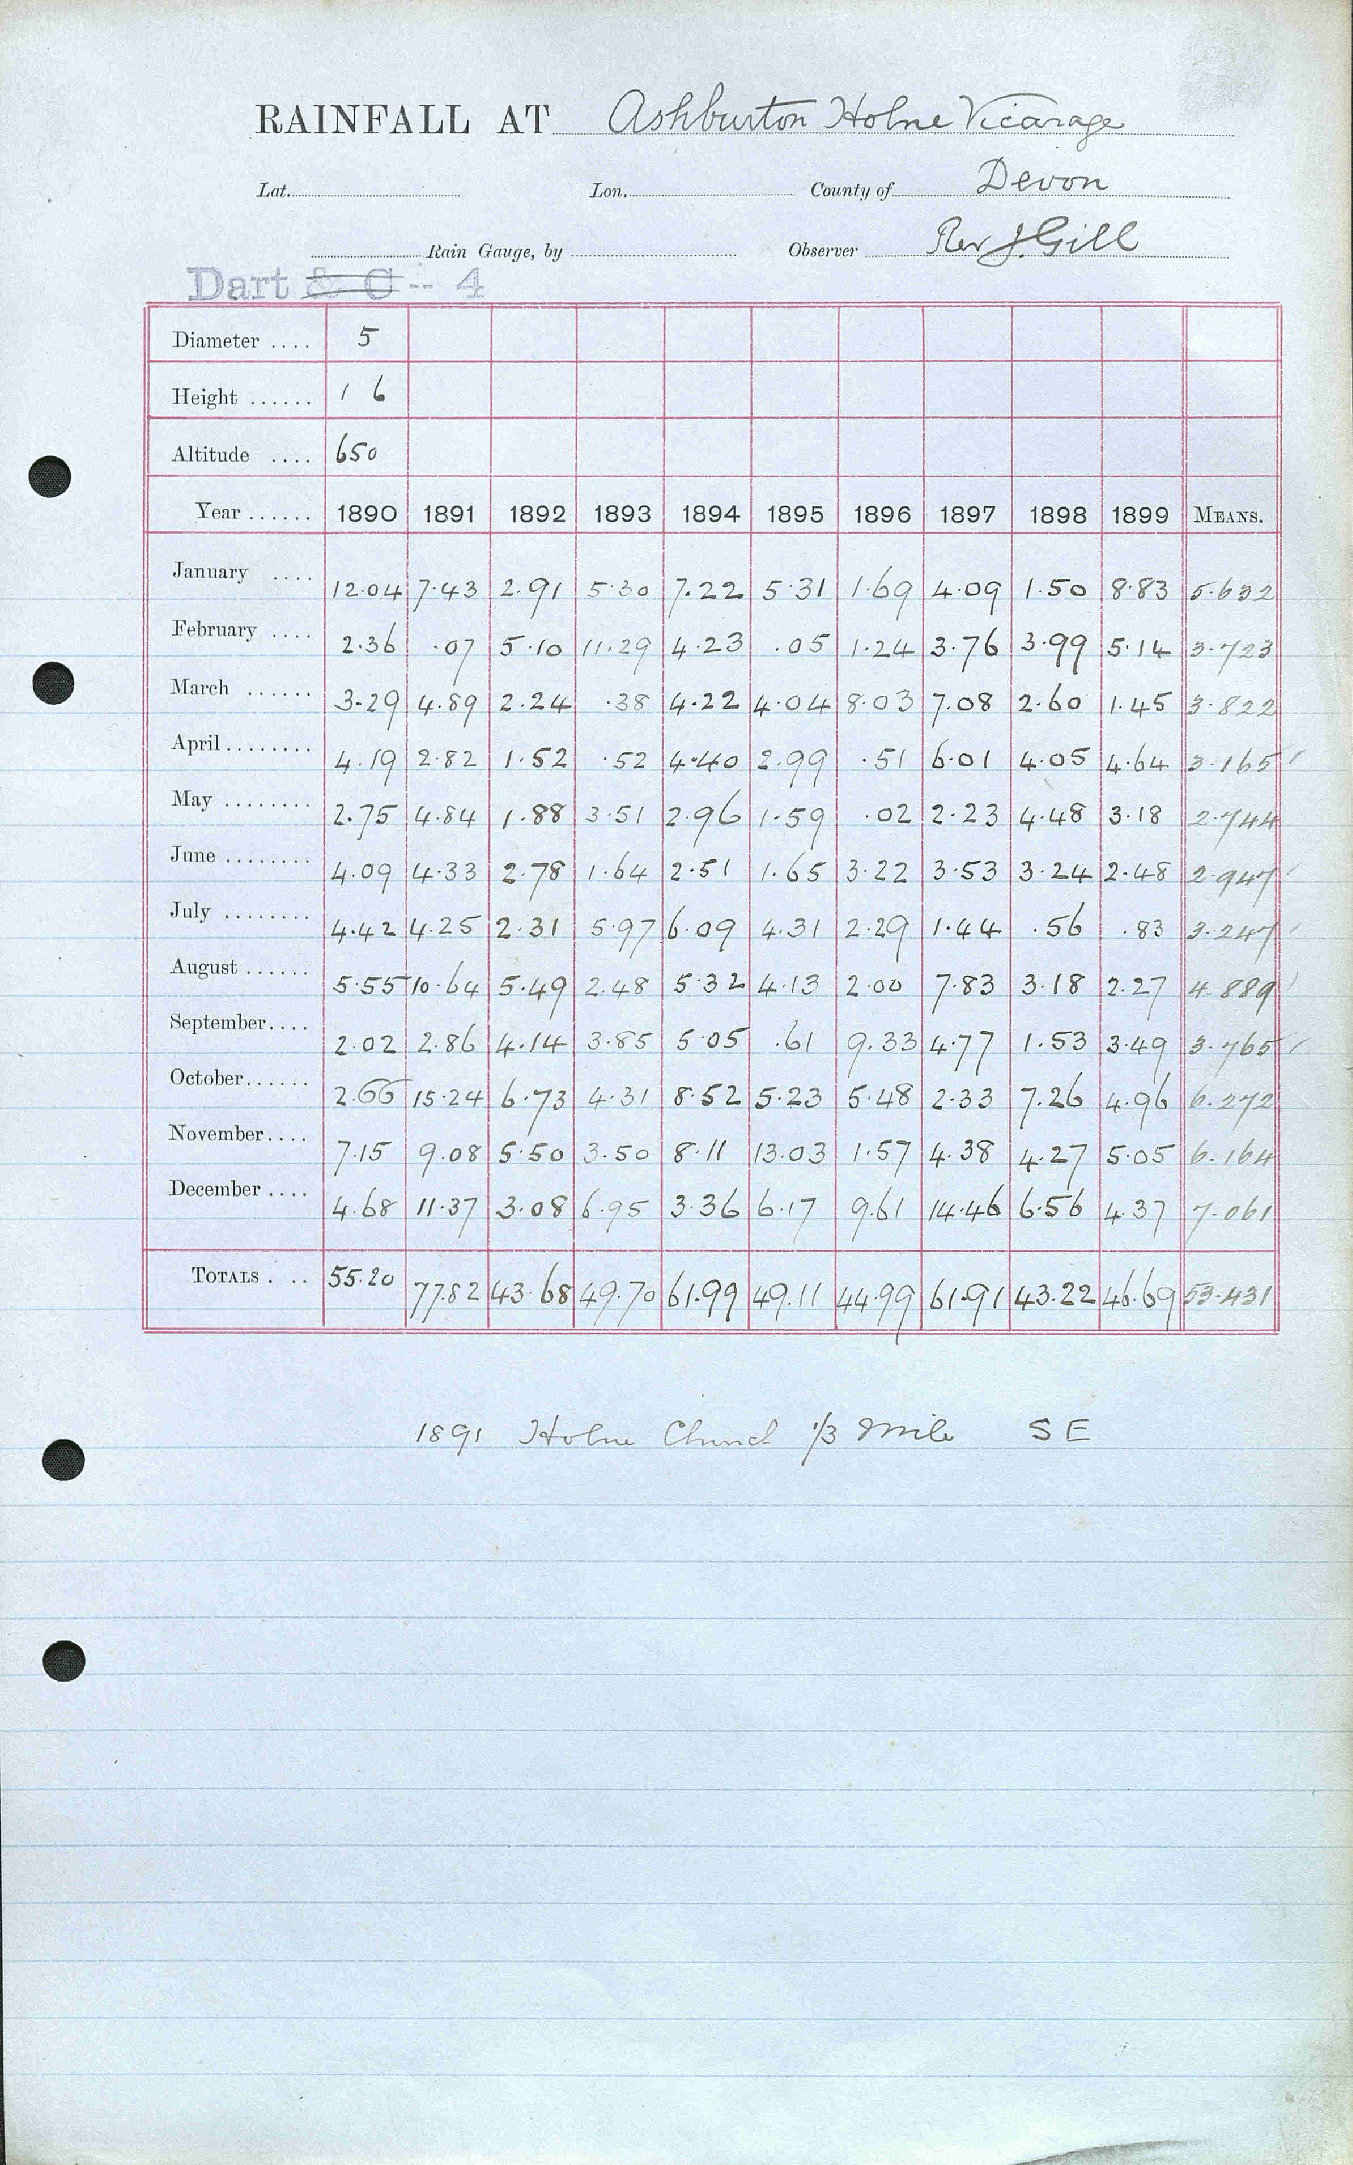 RAINFALL AT Ashburton Holne Vicarage
Lat. Lon. County of Devon
Rain Gauge, by Observer Rev J. Gill
Dart & C -- 4
Diameter .... 5
Height ...... 1 6
Altitude .... 650
Year ...... 1890 1891 1892 1893 1894 1895 1896 1897 1898 1899 MEANS.
January .... 12.04 7.43 2.91 5.30 7.22 5.31 1.69 4.09 1.50 8.83 5.632
February .... 2.36 .07 5.10 11.29 4.23 .05 1.24 3.76 3.99 5.14 3.723
March ...... 3.29 4.89 2.24 .38 4.22 4.04 8.03 7.08 2.60 1.45 3.822
April ........ 4.19 2.82 1.52 .52 4.40 2.99 .51 6.01 4.05 4.64 3.165
May ........ 2.75 4.84 1.88 3.51 2.96 1.59 .02 2.23 4.48 3.18 2.744
June ........ 4.09 4.33 2.78 1.64 2.51 1.65 3.22 3.53 3.24 2.48 2.947
July ........ 4.42 4.25 2.31 5.97 6.09 4.31 2.29 1.44 .56 .83 3.247
August ...... 5.55 10.64 5.49 2.48 5.32 4.13 2.00 7.83 3.18 2.27 4.889
September.... 2.02 2.86 4.14 3.85 5.05 .61 9.33 4.77 1.53 3.49 3.765
October...... 2.66 15.24 6.73 4.31 8.52 5.23 5.48 2.33 7.26 4.96 6.272
November.... 7.15 9.08 5.50 3.50 8.11 13.03 1.57 4.38 4.27 5.05 6.164
December .... 4.68 11.37 3.08 6.95 3.36 6.17 9.61 14.46 6.56 4.37 7.061
TOTALS . .. 55.20 77.82 43.68 49.70 61.99 49.11 44.99 61.91 43.22 46.69 53.431
1891 Holne Church 1/3 mile S E